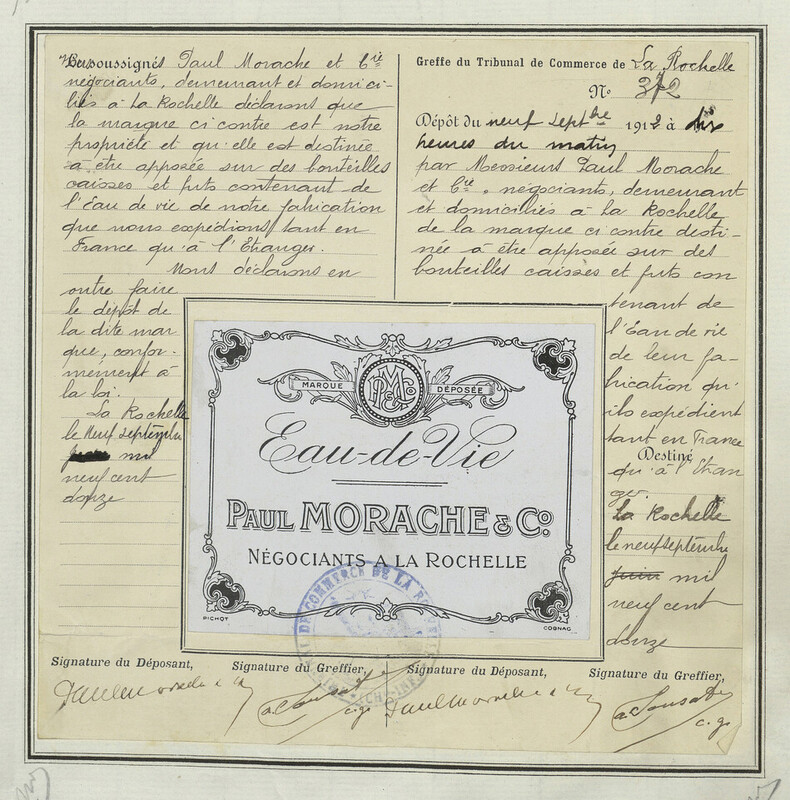 soussignés Paul Morache et Cie
négociants, demeurant et domici-
liés à La Rochelle déclarons que
la marque ci contre est notre
propriété et qu'elle est destinée
à être apposée sur des bouteilles
caisses et futs contenant de
l'Eau de vie de notre fabrication
que nous expédions tant en
France qu'à l'Etranger.
Nous déclarons en
outre faire
le dépôt de
la dite mar
que, confor-
mément à
la loi.
La Rochelle
le Neuf septembre
mil
neuf cent
douze
Greffe du Tribunal de Commerce de La Rochelle
No 372
Dépôt du neuf Septbre 1912 à dix
heures du matin
par Messieurs Paul Morache
et Cie, négociants, demeurant
et domiciliés à La Rochelle
de la marque ci contre desti-
née à être apposée sur des
bouteilles caisses et futs con
tenant de
l'Eau de vie
de leur fa-
brication qu'
ils expédient
tant en France
Destiné
qu'à l'Etran
ger.
La Rochelle
le neuf septembre
juin mil
neuf cent
douze
MARQUE DÉPOSÉE
PM & Co
Eau-de-Vie
PAUL MORACHE & Co.
NÉGOCIANTS A LA ROCHELLE
PICHOT COGNAC
DE COMMERCE DE LA
Signature du Déposant, Signature du Greffier, Signature du Déposant, Signature du Greffier,
Paul Morache & Co
c.g.
Paul Morache & Co
c.g.